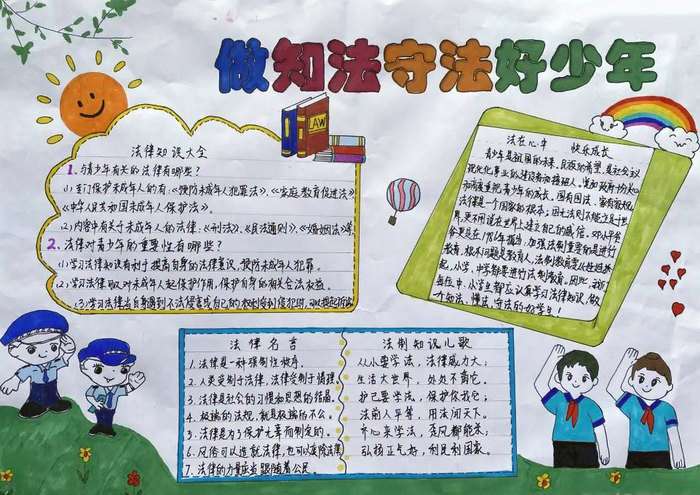 做知法守法好少年
法律知识大全
1.与青少年有关的法律有哪些?
(1)专门保护未成年人的有:《预防未成年人犯罪法》、《家庭教育促进法》
《中华人民共和国未成年人保护法》、
(2)内容中有关于未成年人的法律、《刑法》、《民法通则》、《婚姻法》等
2.法律对青少年的重要性有哪些?
(1)学习法律知识有利于提高自身的法律意识,预防未成年人犯罪。
(2)学习法律可以对未成年人起保护作用,保护自身的相关合法权益。
(3)学习法律当自身遇到不法侵害或自己的权利受到侵犯时,可以
LAW
法在心中 快乐成长
青少年是祖国的未来,民族的希望,是社会主
法律是一个国家的根本;因此法
教育,根本问题是教育人,法制教育要从娃娃抓
起,小学,中学都要进行法制教育。因此,我们
每位中、小学生都应认真学习法律知识,做
个知法、懂法、守法的好学生!
法律名言
1.法律是一种强制性秩序。
2.人类受制于法律,法律受制于情理。
3.法律是社会的习惯和思想的结晶。
4.极端的法规,就是极端的不公。
5.法律是为了保护无辜而制定的。
6.风俗可以造就法律,也可以废除法律
7.法律的力量应当跟随着公民。
法制知识儿歌
从小要学法,法律威力大;
生活大世界,处处不离它。
护己要学法,保护你我它;
法前人平等,用法闯天下。
齐心来学法,歪风都能杀。
弘扬正气好,利民利国家。